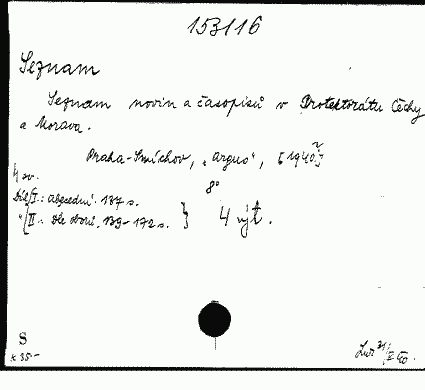 153116
Seznam
Seznam novin a časopisů v Protektorátu Čechy
a Morava.
Praha-Smíchov, „Argus“, [1940?]
4 sv. 8°
Díl I.: Abecední. 137 s.
II.: Dle oborů. 139-172 s. } 4 výt.
S
K 35.-